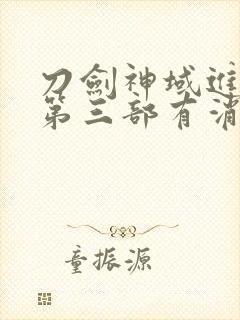 刀劍神域進
第三部有消
童振源